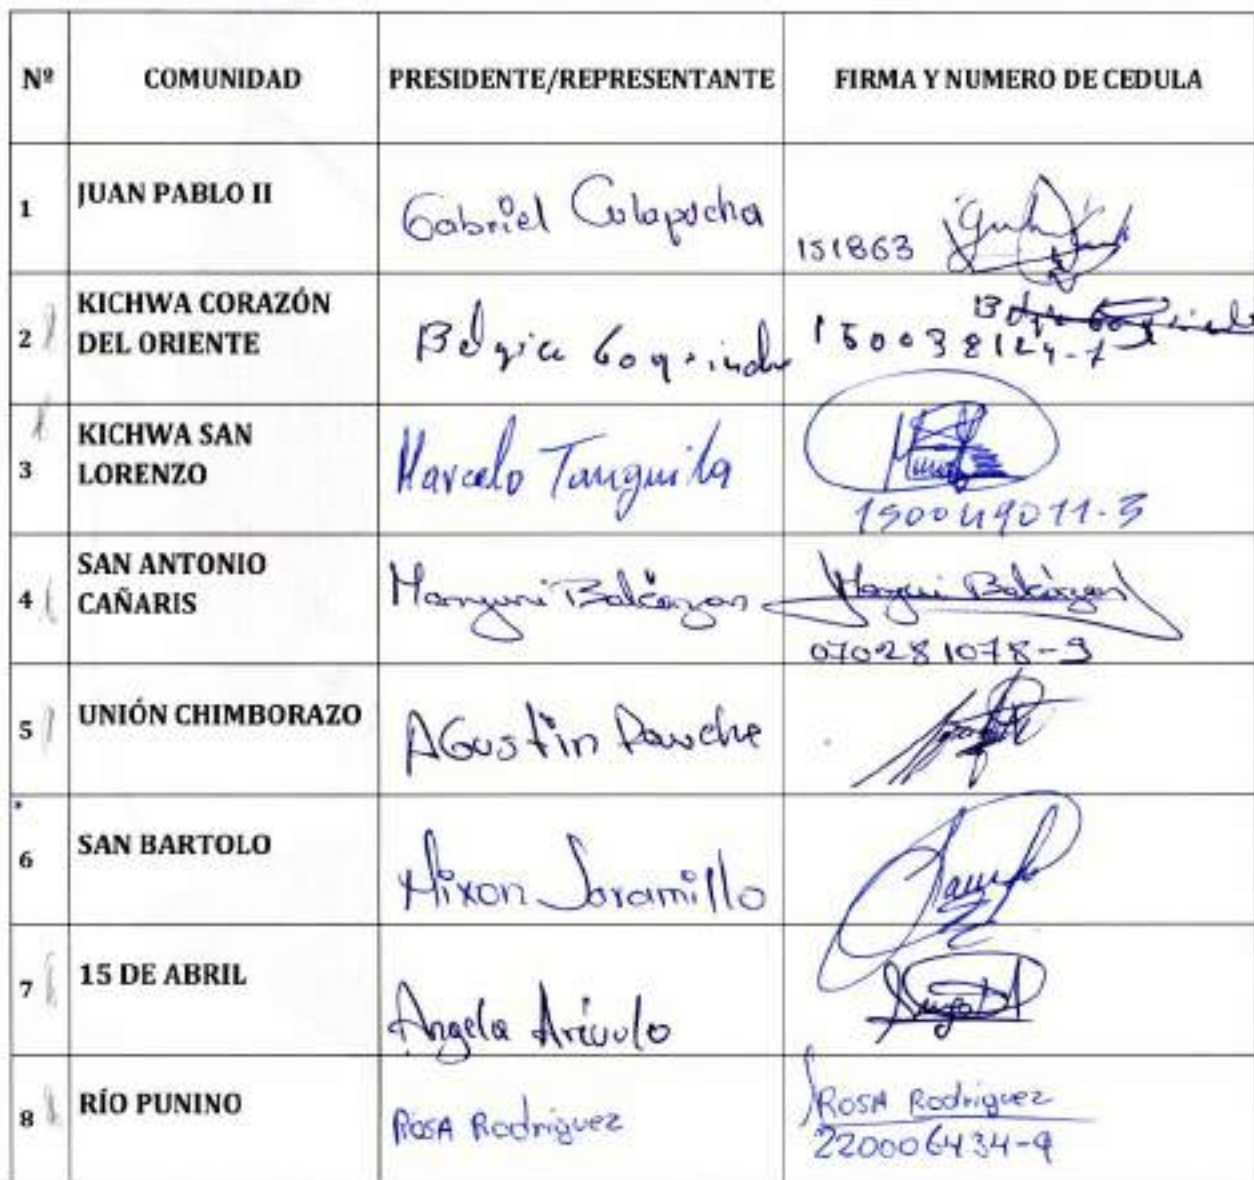 Nº COMUNIDAD PRESIDENTE/REPRESENTANTE FIRMA Y NUMERO DE CEDULA
1 JUAN PABLO II Gabriel Culapucha 151863
2 KICHWA CORAZÓN DEL ORIENTE Belgica 150038124-7
3 KICHWA SAN LORENZO Marcelo Tanguila 150049011-3
4 SAN ANTONIO CAÑARIS Balcázar Balcázar 070281078-9
5 UNIÓN CHIMBORAZO AGustin
6 SAN BARTOLO Nixon Jaramillo
7 15 DE ABRIL Angela
8 RÍO PUNINO ROSA Rodríguez ROSA Rodríguez 220006434-9